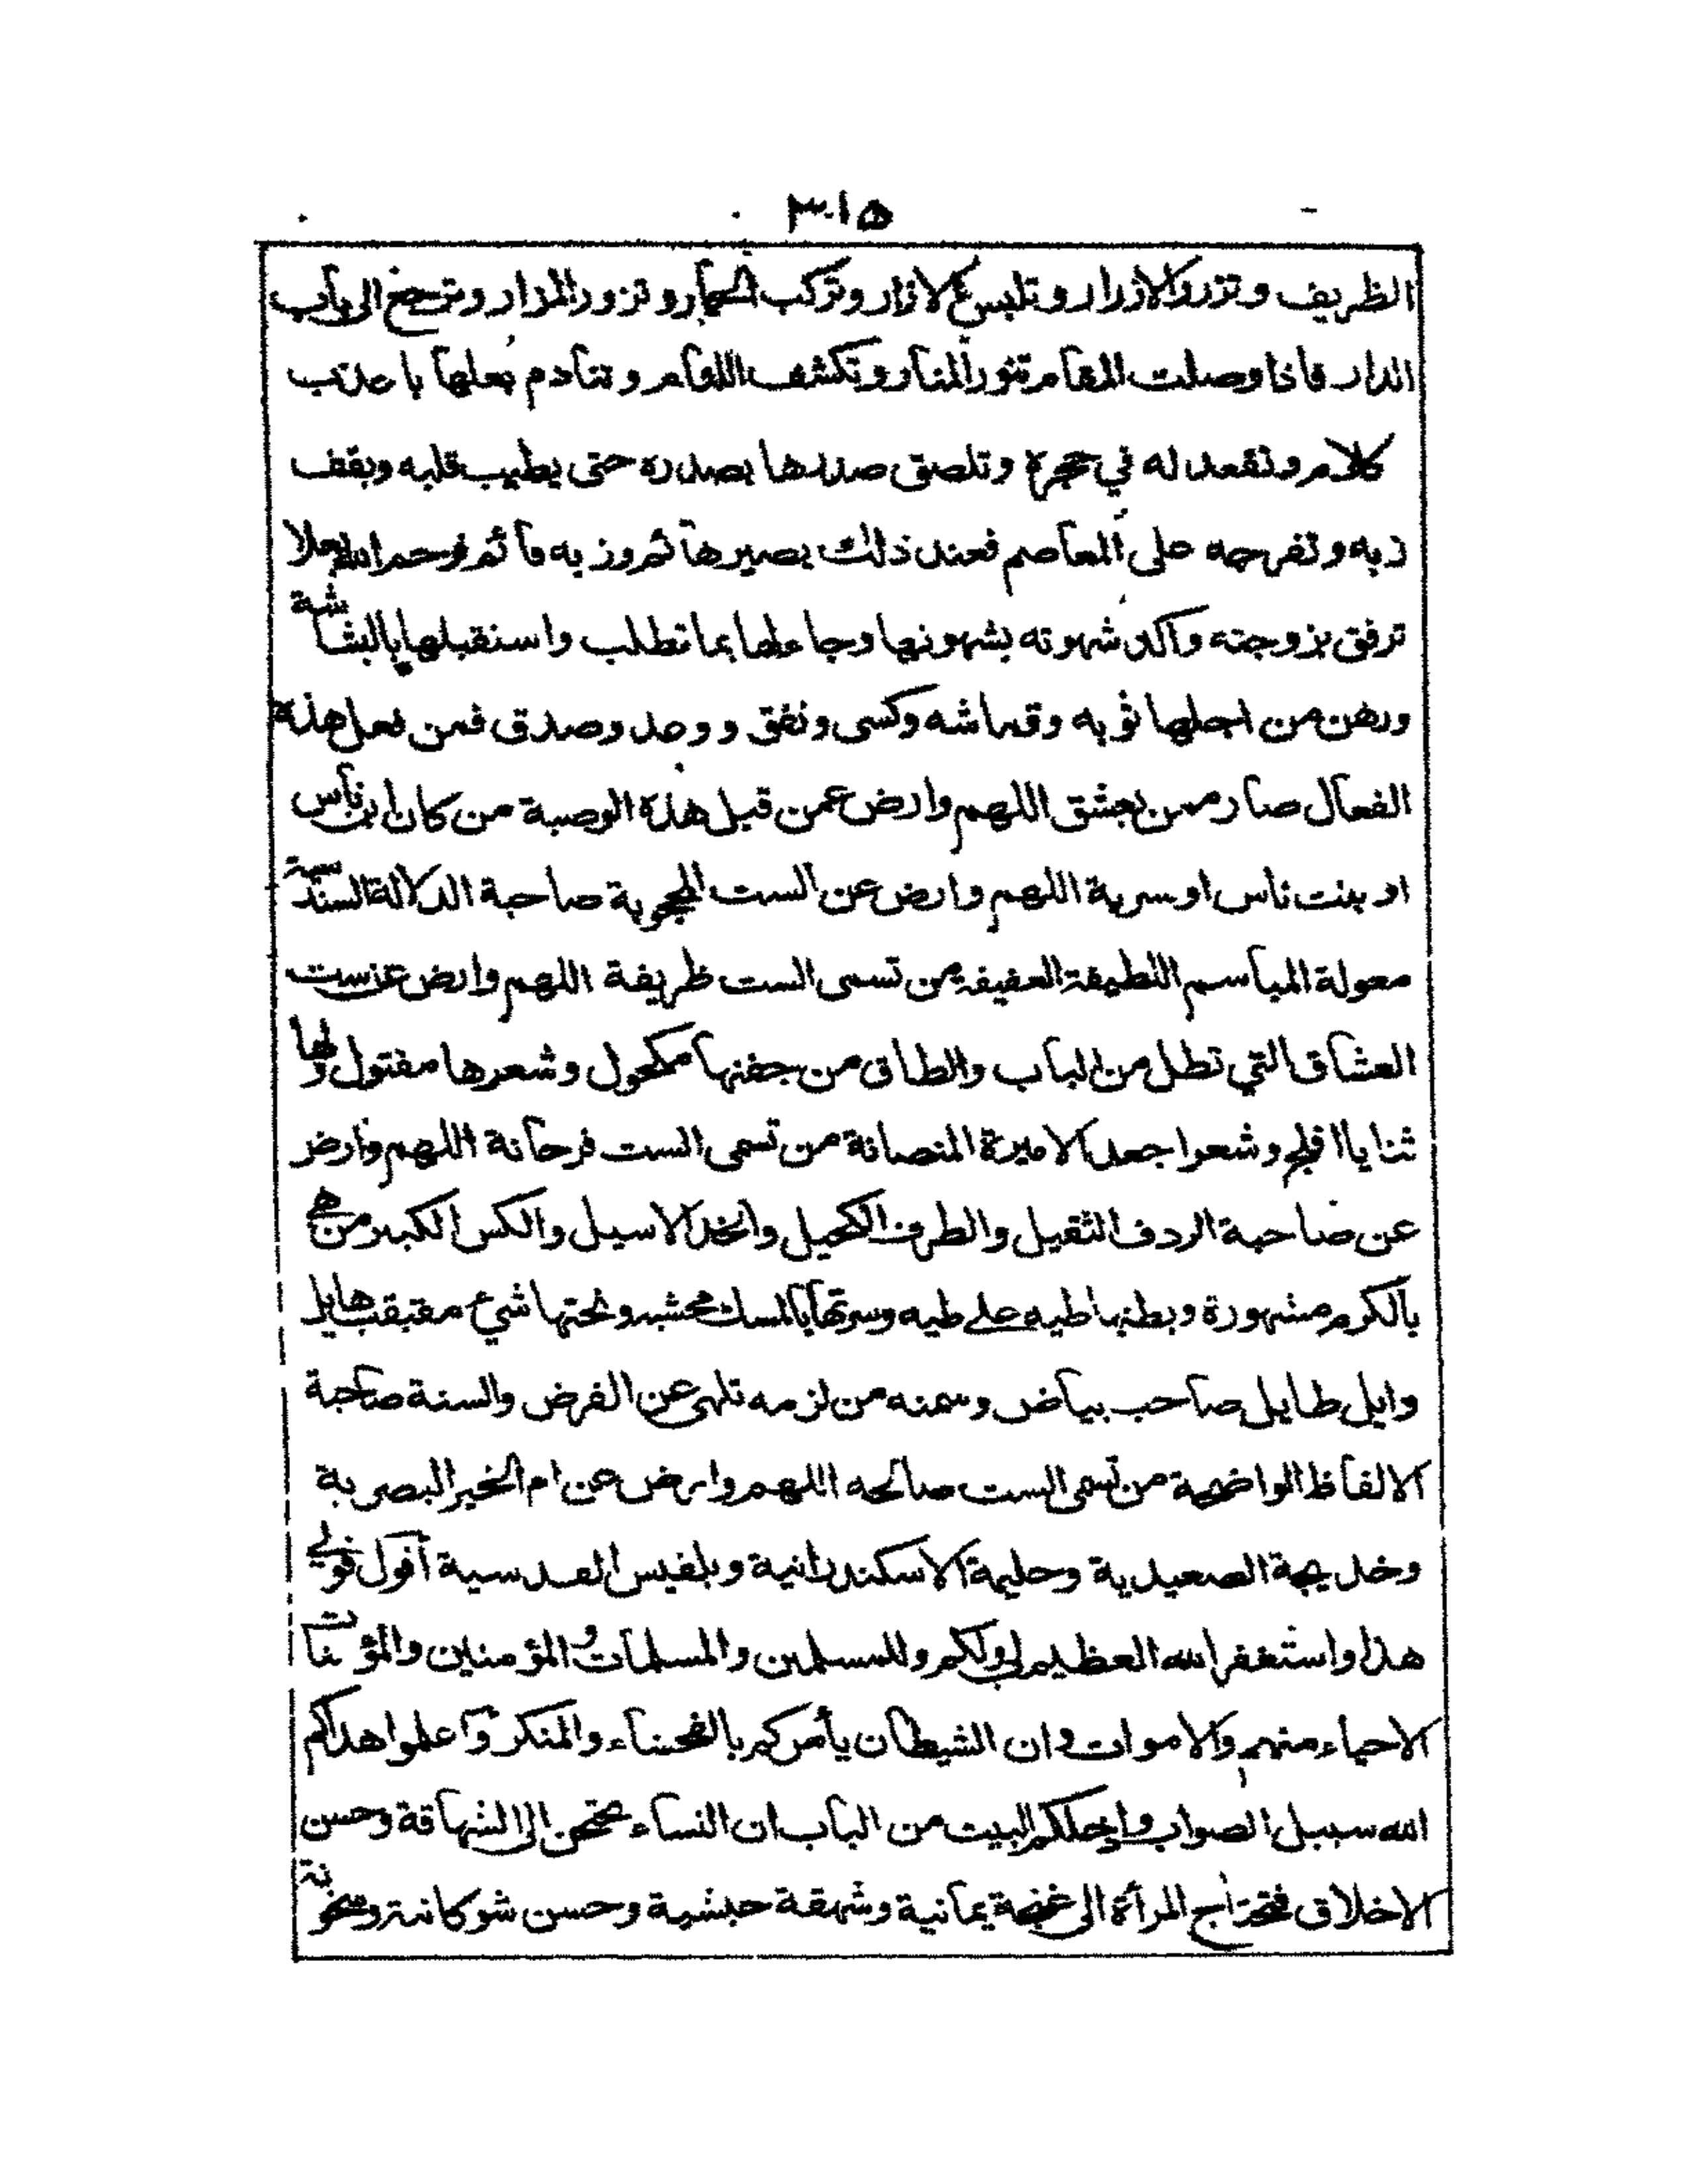 ٣١٥
الظريف وتزرر الازرار وتلبس الازار وتركب الحمار وتزور المزار وترجع الى باب
الدار فاذا وصلت المقام تنور المنار وتكشف اللثام وتنادم بعلها باعذب
كلام وتقعد له في حجره وتلصق صدرها بصدره حتى يطيب قلبه ويقف
زبه وتفرجه على المعاصم فعند ذلك بصيرها زبه فرحم الله رجلا
ترفق بزوجته واكد شهوته بشهوتها وجاء لها بما تطلب واستقبلها بالبشاشة
ورهن من اجلها ثوبه وقماشه وكسى ونفق ووعد وصدق فمن فعل هذه
الفعال صار ممن يعشق اللهم وارض عمن قبل هذه الوصية من كان ابن ناس
او بنت ناس او سرية اللهم وارض عن الست المحجوبة صاحبة الدلالة
معولة المباسم اللطيفة العفيفة من تسمى الست ظريفة اللهم وارض عن ست
العشاق التي تطل من الباب والطاق من جفنها مكحول وشعرها مفتول ولها
ثنايا افلج وشعرا جعد الاميرة المنصانة من تسمى الست فرحانة اللهم وارض
عن صاحبة الردف الثقيل والطرف الكحيل والخد الاسيل والكس الكبير من هي
بالكرم مشهورة وبطنها طيه على طيه وسرتها بالمسك محشيه وتحتها شيء مقبقب هايل
وايل طايل صاحب بياض وسمنه من لزمه تلهى عن الفرض والسنة صاحبة
الالفاظ الواضحة من تسمى الست صالحه اللهم وارض عن ام الخير البصرية
وخديجة الصعيدية وحليمة الاسكندرانية وبلقيس القدسية أقول قولي
هذا واستغفر الله العظيم لي ولكم وللمسلمين والمسلمات والمؤمنين والمؤمنات
الاحياء منهم والاموات وان الشيطان يأمركم بالفحشاء والمنكر واعلموا هداكم
الله سبيل الصواب وادخلكم البيت من الباب ان النساء تحتجن الى الشهاقة وحسن
الاخلاق فتحتاج المرأة الى غنجة يمانية وشهقة حبشية وحسن وسخونة